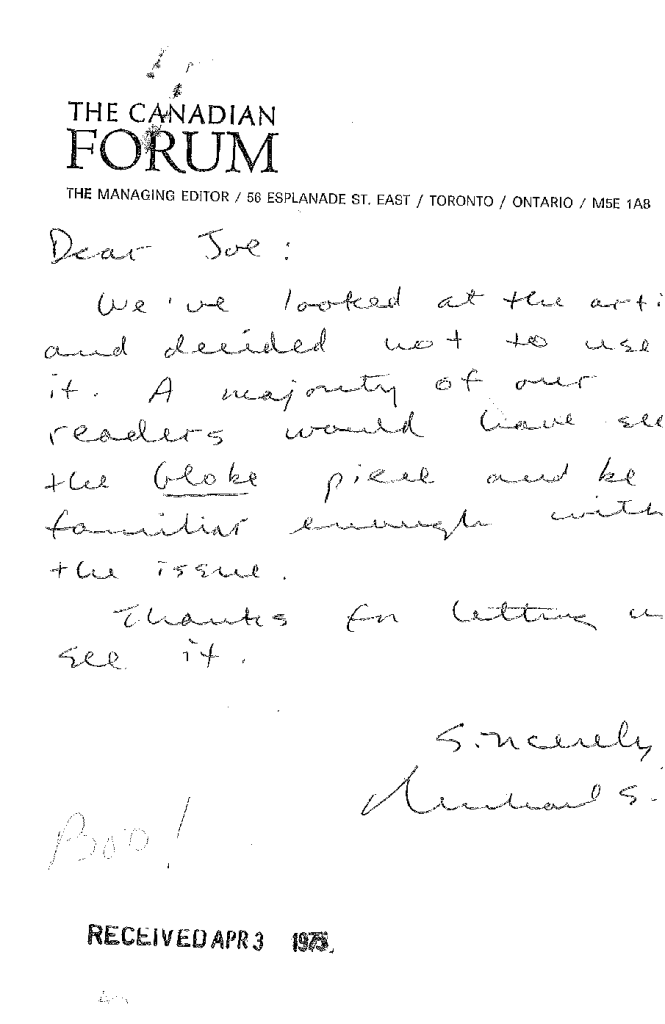 THE CANADIAN
FORUM
THE MANAGING EDITOR / 56 ESPLANADE ST. EAST / TORONTO / ONTARIO / M5E 1A8
Dear Joe:
We've looked at the arti
and decided not to use
it. A majority of our
readers would have see
the Globe piece and be
familiar enough with
the issue.
Thanks for letting u
see it.
Sincerely,
Michael S.
Boo!
RECEIVED APR 3 1975.